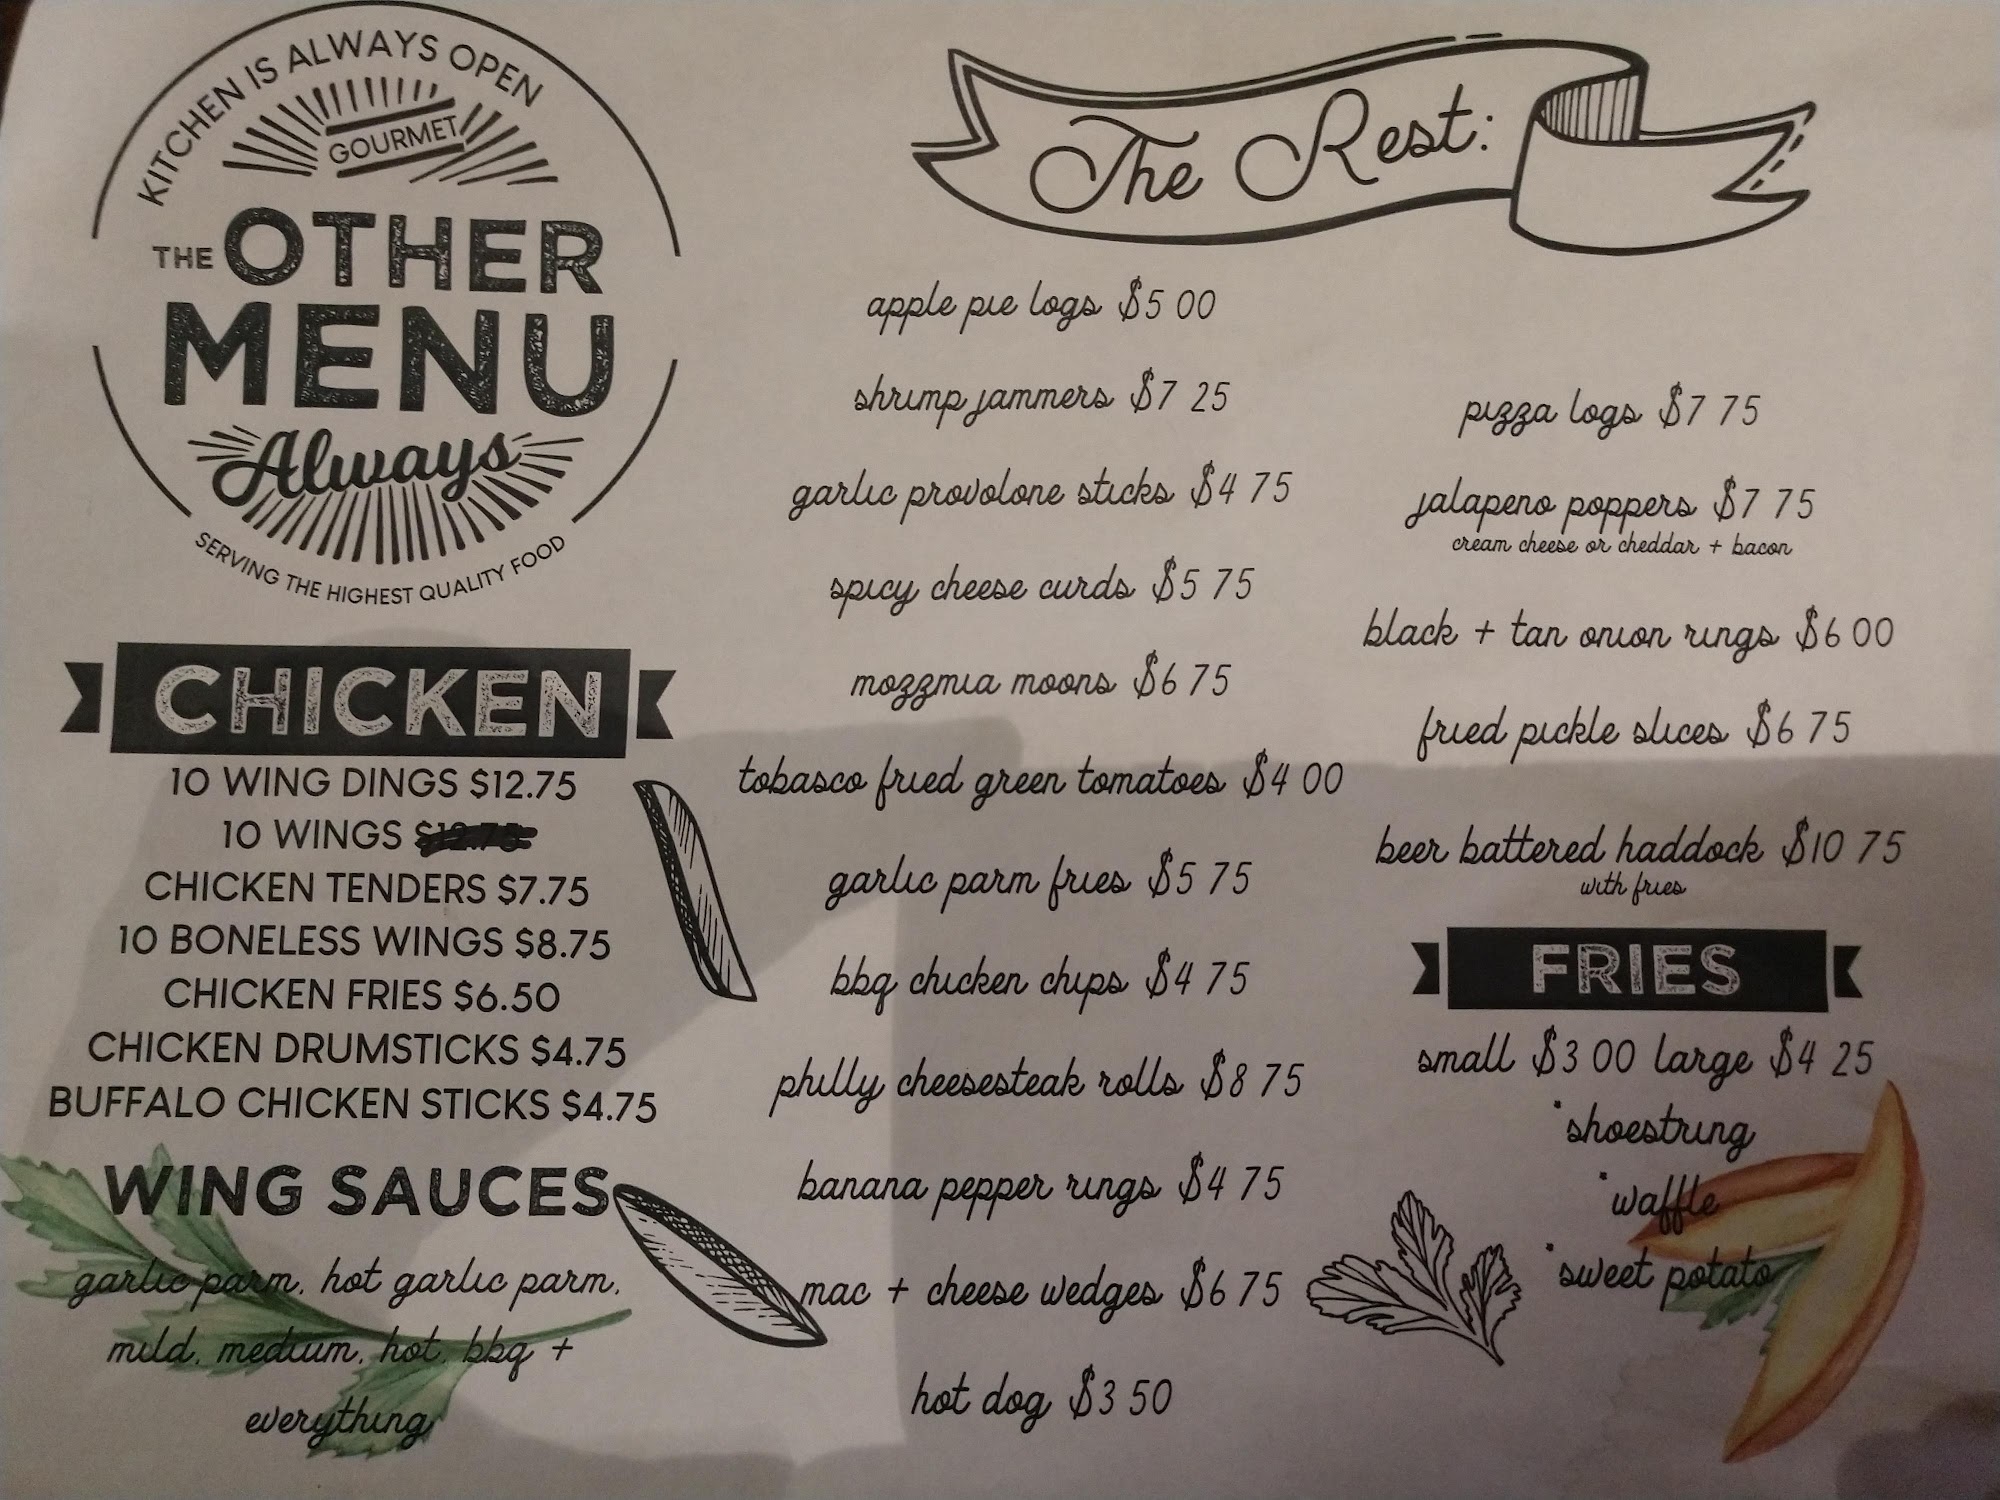 KITCHEN IS ALWAYS OPEN
GOURMET
THE OTHER
MENU
Always
SERVING THE HIGHEST QUALITY FOOD
CHICKEN
10 WING DINGS $12.75
10 WINGS $12.75
CHICKEN TENDERS $7.75
10 BONELESS WINGS $8.75
CHICKEN FRIES $6.50
CHICKEN DRUMSTICKS $4.75
BUFFALO CHICKEN STICKS $4.75
WING SAUCES
garlic parm, hot garlic parm,
mild, medium, hot, bbq +
everything
The Rest:
apple pie logs $5 00
shrimp jammers $7 25
garlic provolone sticks $4 75
spicy cheese curds $5 75
mozzmia moons $6 75
tobasco fried green tomatoes $4 00
garlic parm fries $5 75
bbq chicken chips $4 75
philly cheesesteak rolls $8 75
banana pepper rings $4 75
mac + cheese wedges $6 75
hot dog $3 50
pizza logs $7 75
jalapeno poppers $7 75
cream cheese or cheddar + bacon
black + tan onion rings $6 00
fried pickle slices $6 75
beer battered haddock $10 75
with fries
FRIES
small $3 00 large $4 25
*shoestring
*waffle
*sweet potato